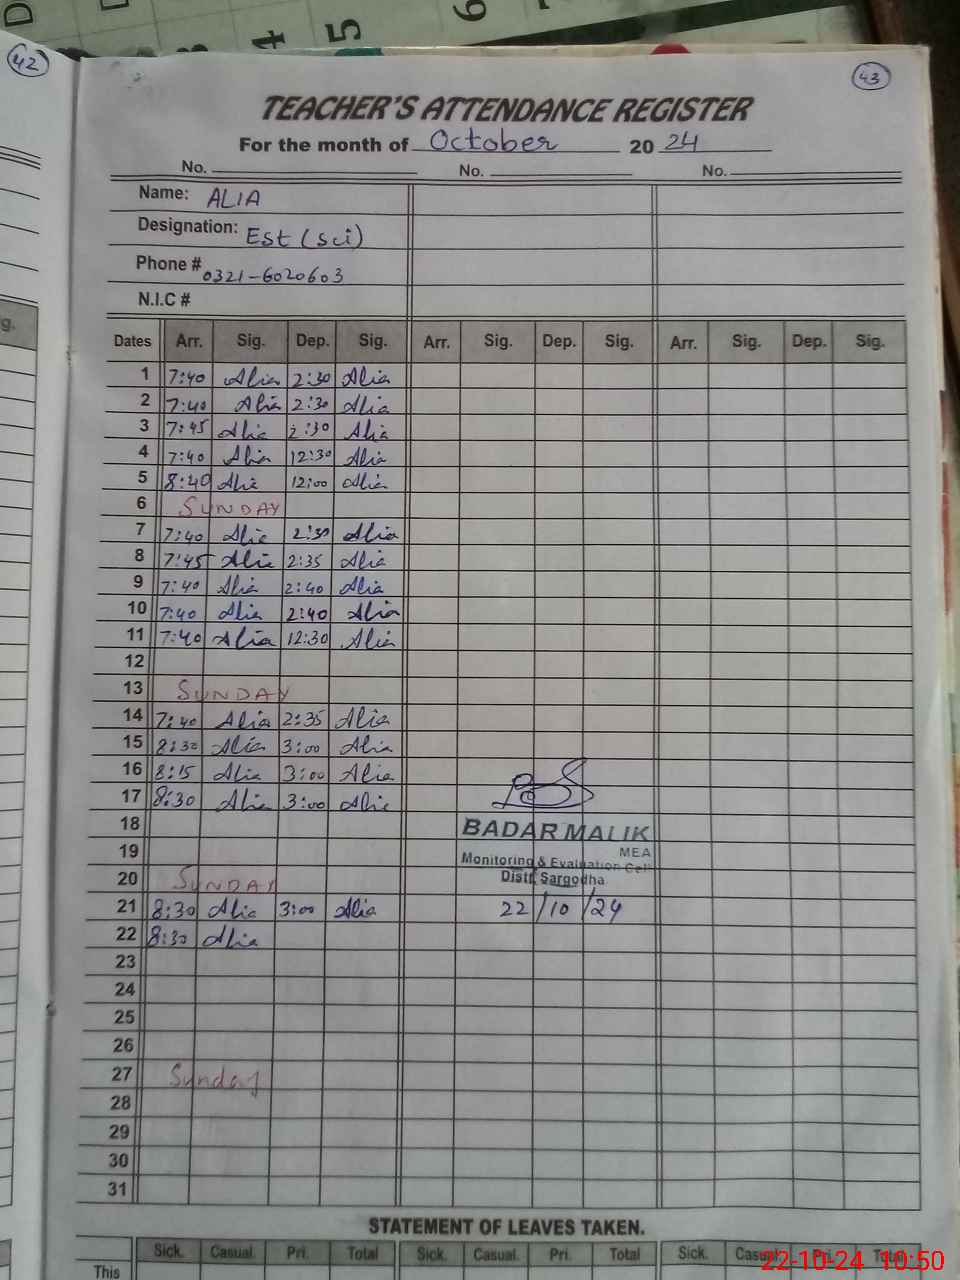 42
43
TEACHER'S ATTENDANCE REGISTER
For the month of October 2024
No. No. No.
Name: ALIA
Designation: Est (sci)
Phone # 0321-6020603
N.I.C #
Dates Arr. Sig. Dep. Sig. Arr. Sig. Dep. Sig. Arr. Sig. Dep. Sig.
1 7:40 Alia 2:30 Alia
2 7:40 Alia 2:30 Alia
3 7:45 Alia 2:30 Alia
4 7:40 Alia 12:30 Alia
5 8:40 Alia 12:00 Alia
6 SUNDAY
7 7:40 Alia 2:30 Alia
8 7:45 Alia 2:35 Alia
9 7:40 Alia 2:40 Alia
10 7:40 Alia 2:40 Alia
11 7:40 Alia 12:30 Alia
12
13 SUNDAY
14 7:40 Alia 2:35 Alia
15 8:30 Alia 3:00 Alia
16 8:15 Alia 3:00 Alia
17 8:30 Alia 3:00 Alia
18 BADAR MALIK
19 MEA
Monitoring & Evaluation Cell
20 SUNDAY Distt. Sargodha
21 8:30 Alia 3:00 Alia 22/10/24
22 8:30 Alia
23
24
25
26
27 Sunday
28
29
30
31
STATEMENT OF LEAVES TAKEN.
Sick. Casual. Pri. Total Sick. Casual. Pri. Total Sick. Casual. Pri. Total
This
22-10-24 10:50